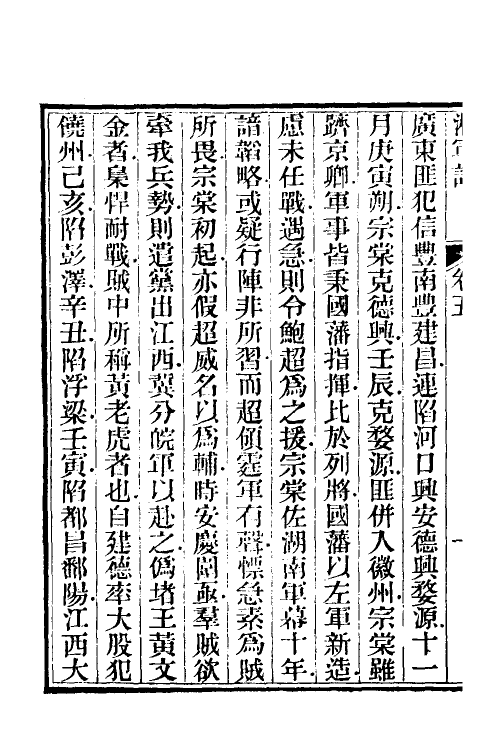 湘軍記
卷五
一
廣東匪犯信豐南豐建昌連陷河口興安德興婺源十一
月庚寅朔宗棠克德興壬辰克婺源匪併入徽州宗棠雖
躋京卿軍事皆秉國藩指揮比於列將國藩以左軍新造
慮未任戰遇急則令鮑超爲之援宗棠佐湖南軍幕十年
諳韜略或疑行陣非所習而超傾霆軍有聲慓急素爲賊
所畏宗棠初起亦假超威名以爲輔時安慶圍亟羣賊欲
牽我兵勢則遣黨出江西冀分皖軍以赴之僞堵王黃文
金者梟悍耐戰賊中所稱黃老虎者也自建德率大股犯
饒州己亥陷彭澤辛丑陷浮梁壬寅陷都昌鄱陽江西大